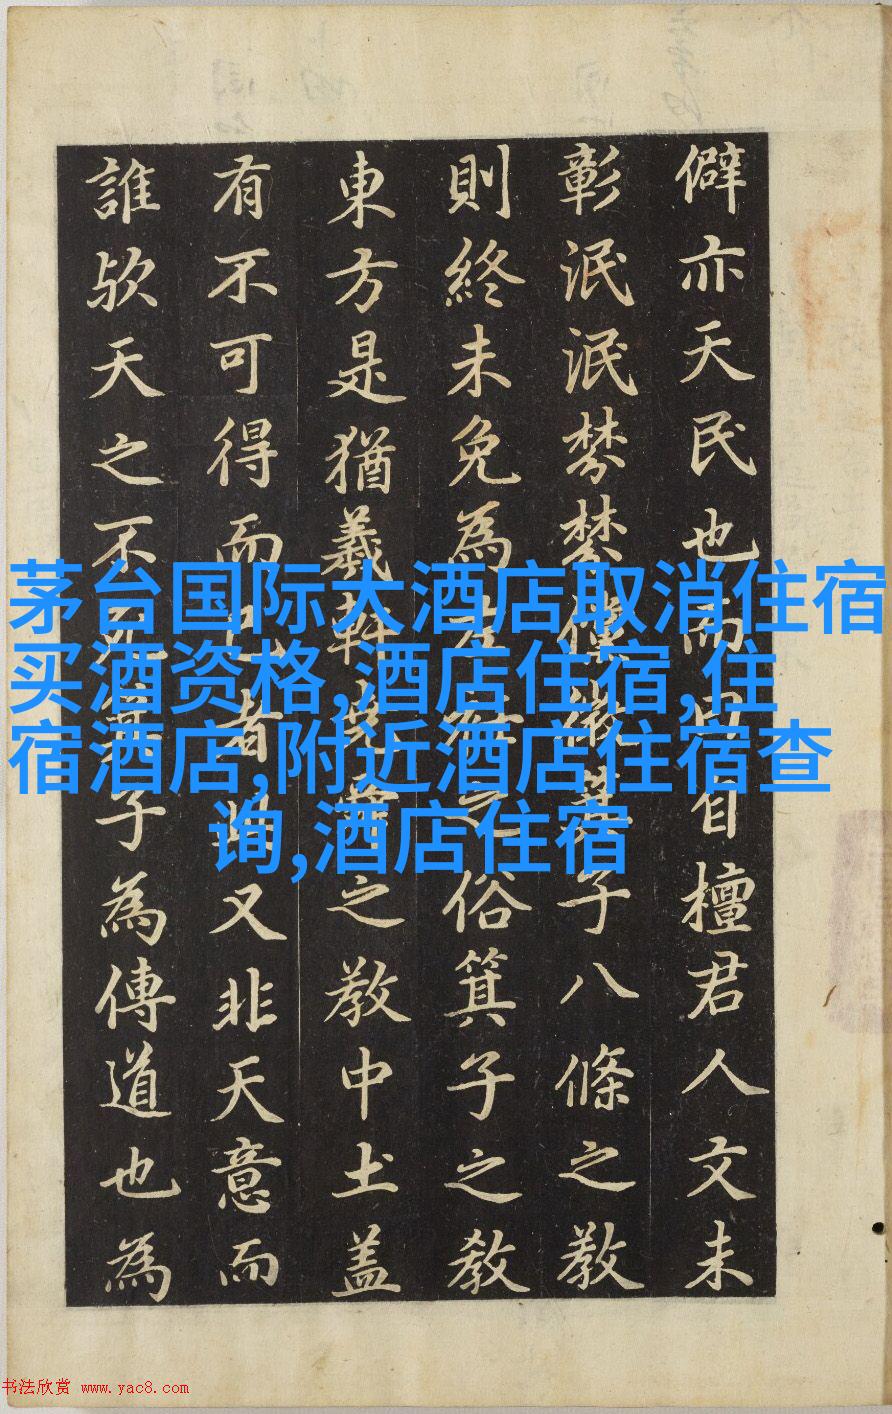 僻亦天民也而自檀君人文未
彰泯泯棼棼僅箕子八條之教
則終未免為左之俗箕子之教
東方是猶羲軒堯舜之教中土盖
有不可得而已者與又非天意而
誰欤天之不死箕子為傳道也為
茅台国际大酒店取消住宿
买酒资格,酒店住宿,住
宿酒店,附近酒店住宿查
询,酒店住宿
书法欣赏 www.yac8.com